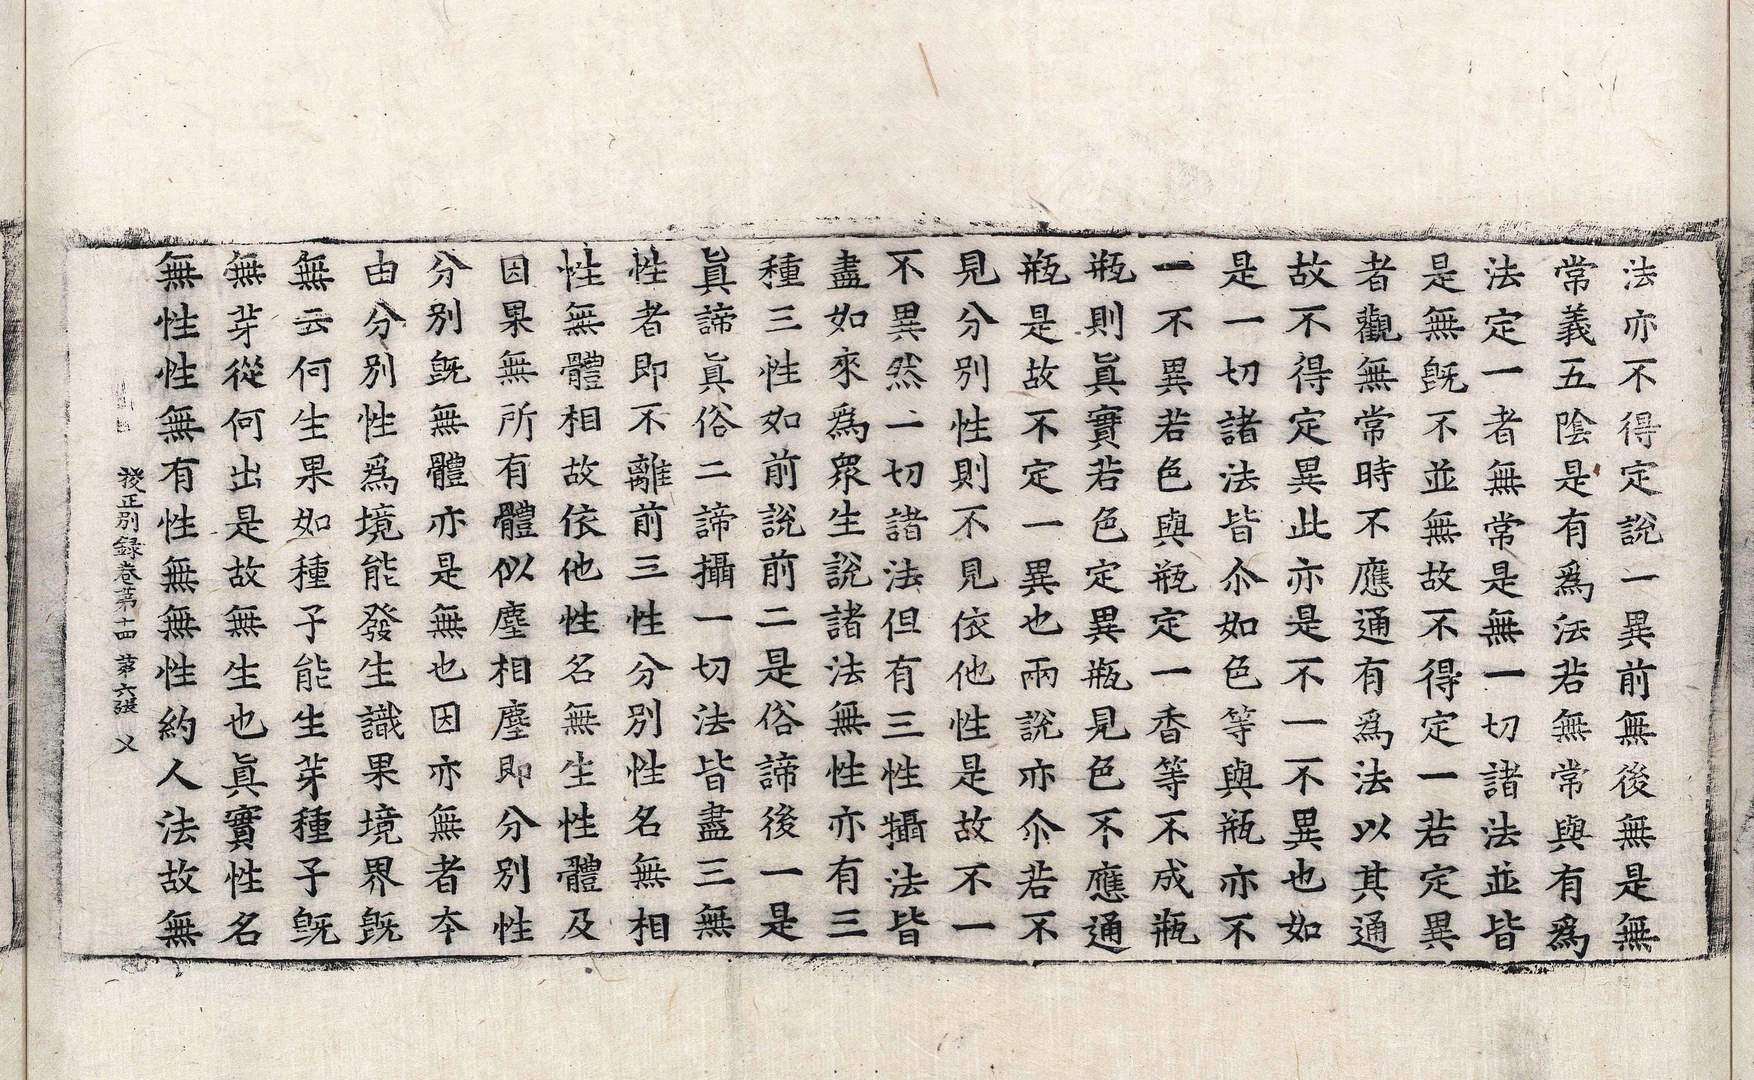 法亦不得定說一異前無後無是無
常義五陰是有爲法若無常與有爲
法定一者無常是無一切諸法並皆
是無旣不並無故不得定一若定異
者觀無常時不應通有爲法以其通
故不得定異此亦是不一不異也如
是一切諸法皆尒如色等與瓶亦不
一不異若色與瓶定一香等不成瓶
瓶則眞實若色定異瓶見色不應通
瓶是故不定一異也兩說亦尒若不
見分別性則不見依他性是故不一
不異然一切諸法但有三性攝法皆
盡如來爲衆生說諸法無性亦有三
種三性如前說前二是俗諦後一是
眞諦眞俗二諦攝一切法皆盡三無
性者即不離前三性分別性名無相
性無體相故依他性名無生性體及
因果無所有體似塵相塵即分別性
分別旣無體亦是無也因亦無者本
由分別性爲境能發生識果境界旣
無云何生果如種子能生芽種子旣
無芽從何出是故無生也眞實性名
無性性無有性無無性約人法故無
挍正別録卷第十四 第六張 义